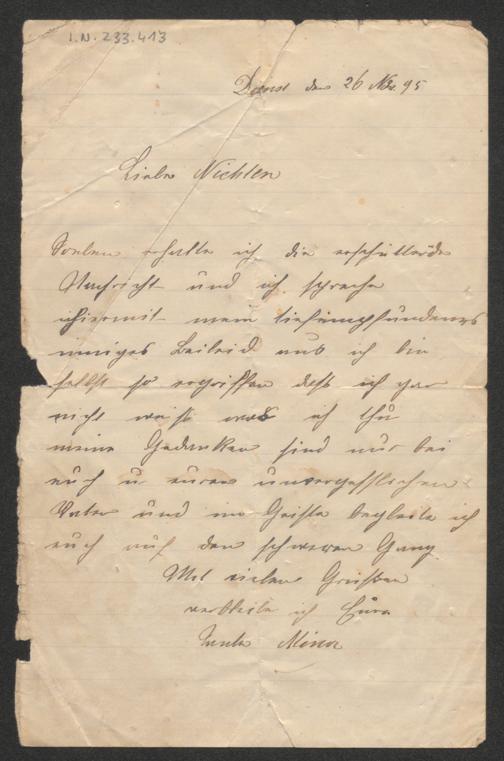 I.N. 233.413
den 26 Nov. 95
Liebe Nichten
Soeben erhalte ich die erschütternde
Nachricht und ich spreche
hiermit mein tiefempfundenes
inniges Beileid aus ich bin
selbst so ergriffen daß ich gar
nicht weiß was ich thu
meine Gedanken sind nur bei
euch u euren unvergesslichen
Vater und im Geiste begleite ich
euch auf den schweren Gang
Mit vielen Grüßen
verbleibe ich Eure
Tante Minna